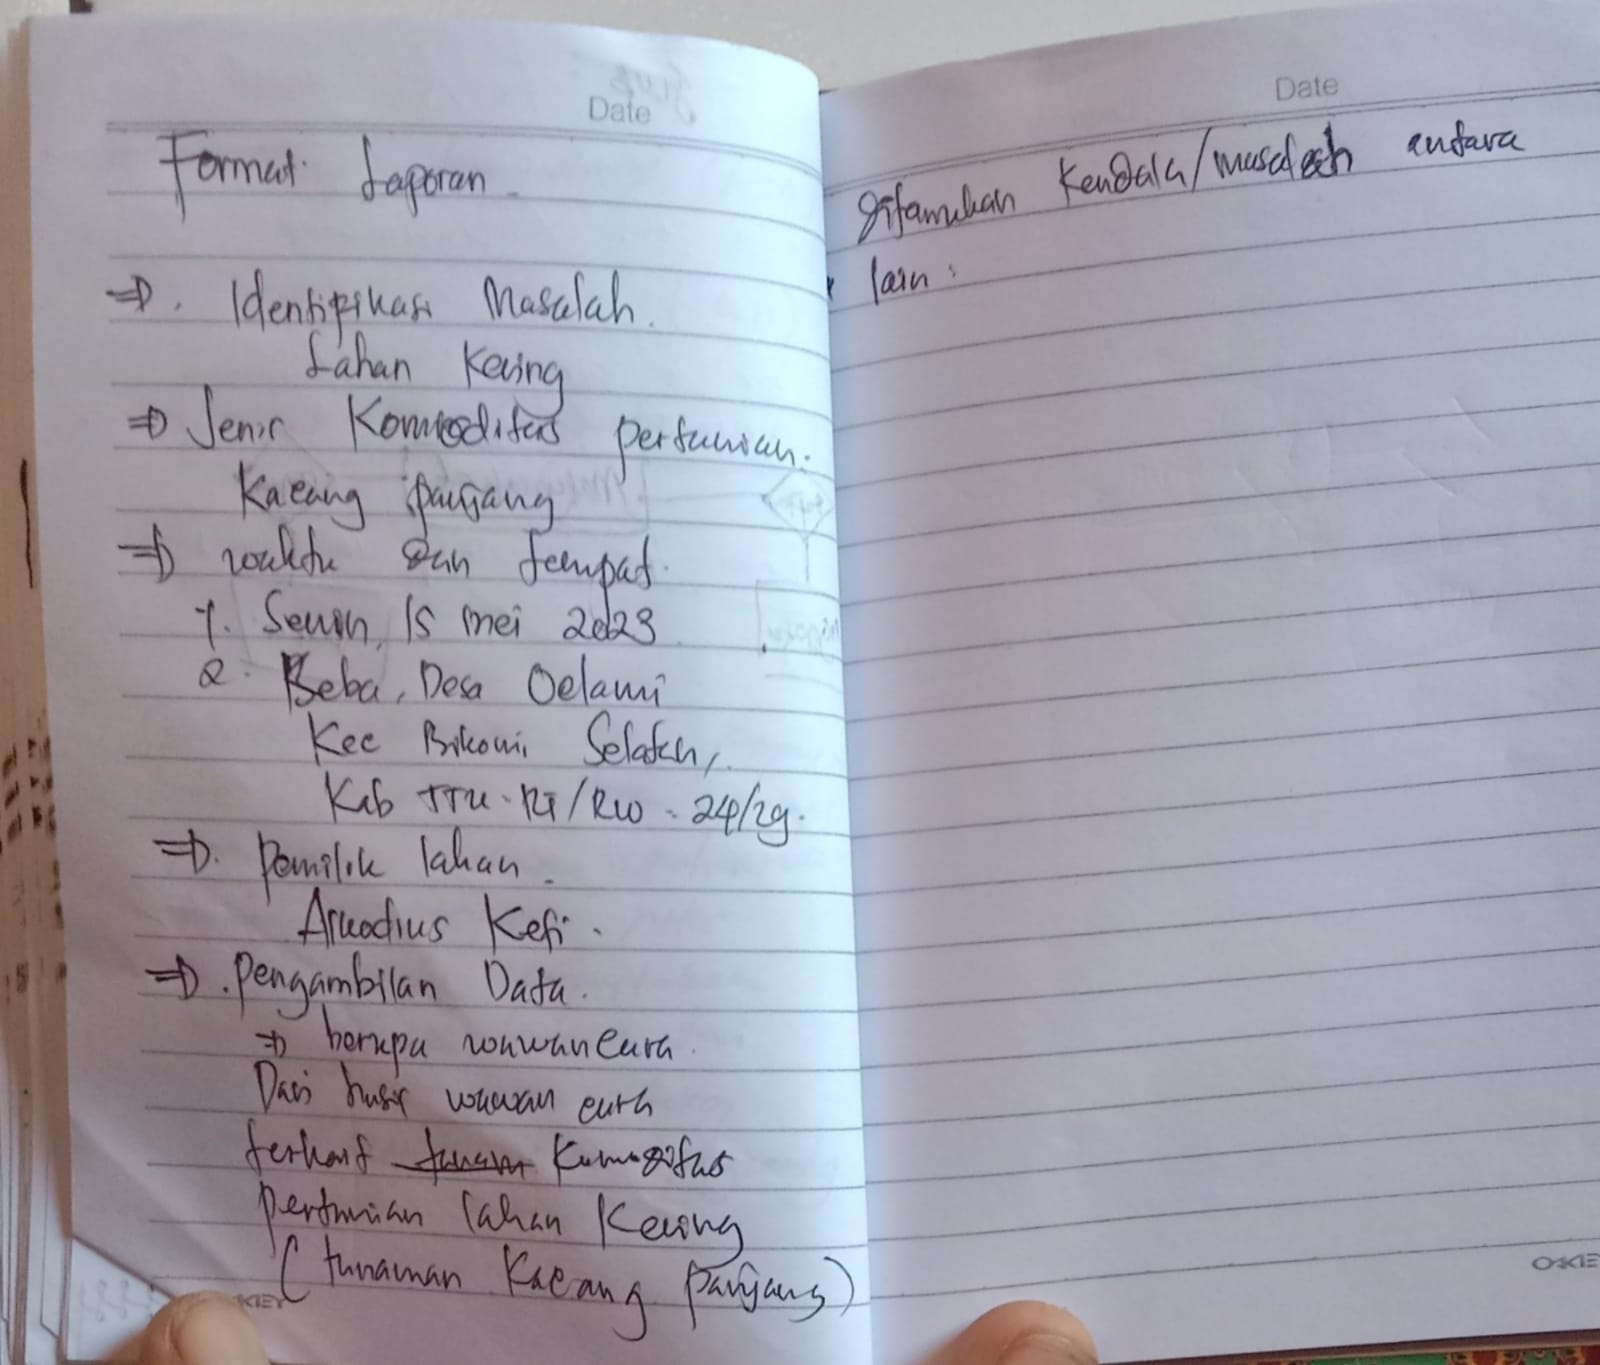 Date
Format Laporan
=> . Identifikasi Masalah.
Lahan Kering
=> Jenis Komoditas pertanian.
Kacang panjang
=> waktu dan tempat.
1. Senin, 15 mei 2023
2. Beba, Desa Oelami
Kec Bikomi Selatan,
Kab TTU - RT/RW -
=> . Pemilik lahan
Arkadius Kefi.
=> . Pengambilan Data.
=> berupa wawancara.
Dari hasil wawan cara
terkait tanam Komoditas
pertanian lahan Kering
( tanaman Kacang panjang )
OKEY
Date
ditemukan Kendala/masalah antara
lain :
OKEY